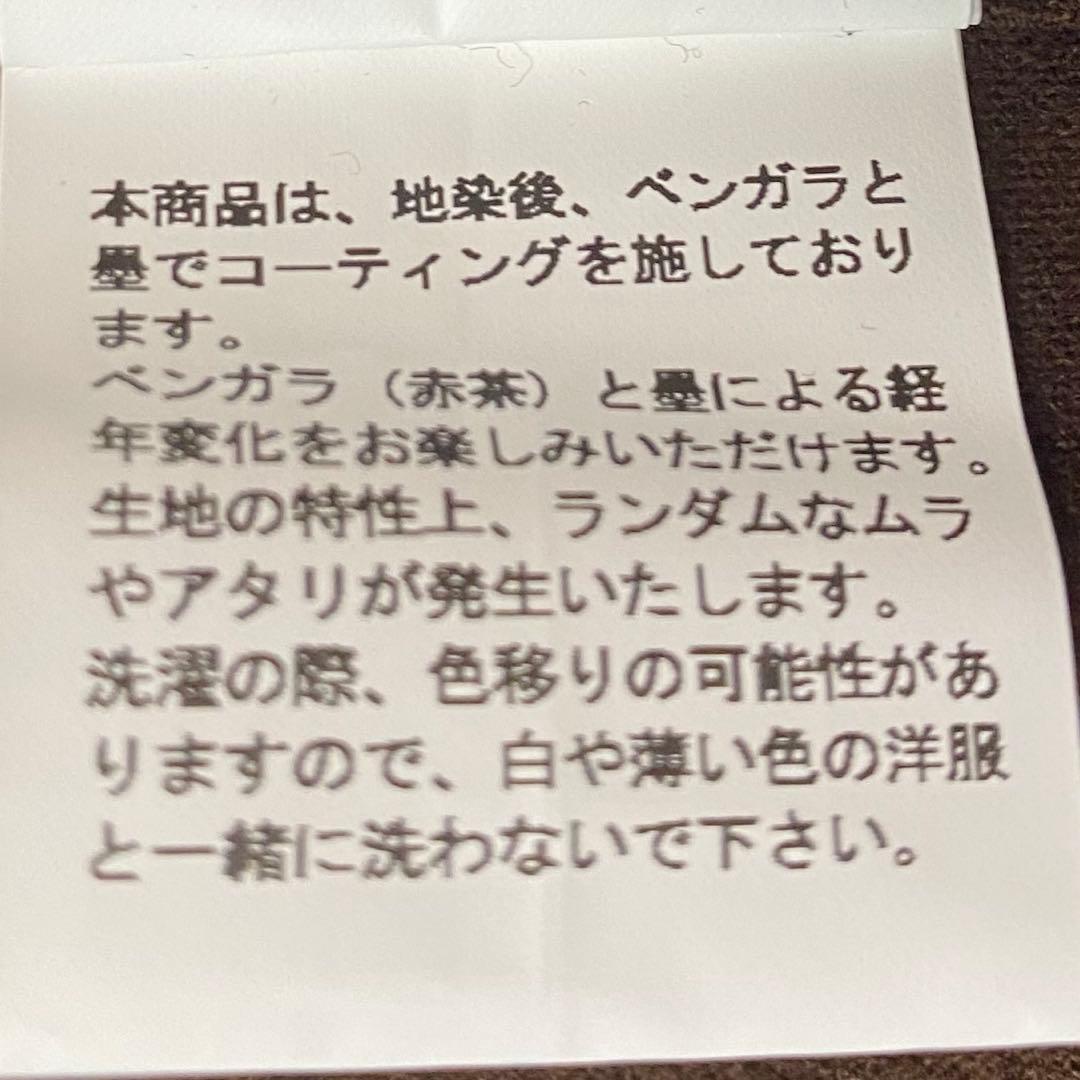 本商品は、地染後、ベンガラと
墨でコーティングを施しており
ます。
ベンガラ（赤茶）と墨による経
年変化をお楽しみいただけます。
生地の特性上、ランダムなムラ
やアタリが発生いたします。
洗濯の際、色移りの可能性があ
りますので、白や薄い色の洋服
と一緒に洗わないで下さい。